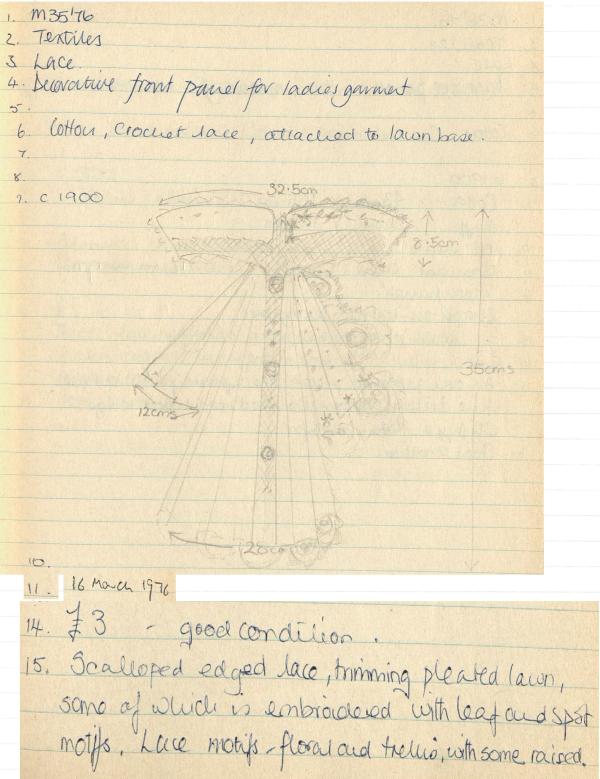 1. M35'76
2. Textiles
3. Lace.
4. Decorative front panel for ladies garment
5.
6. Cotton, Crochet lace, attached to lawn base.
7.
8.
9. c 1900
32.5cm
8.5cm
35cms
12cms
20cm
10.
11. 16 March 1976
14. £3 - good condition.
15. Scalloped edged lace, trimming pleated lawn,
some of which is embroidered with leaf and spot
motifs. Lace motifs - floral and trellis, with some raised.